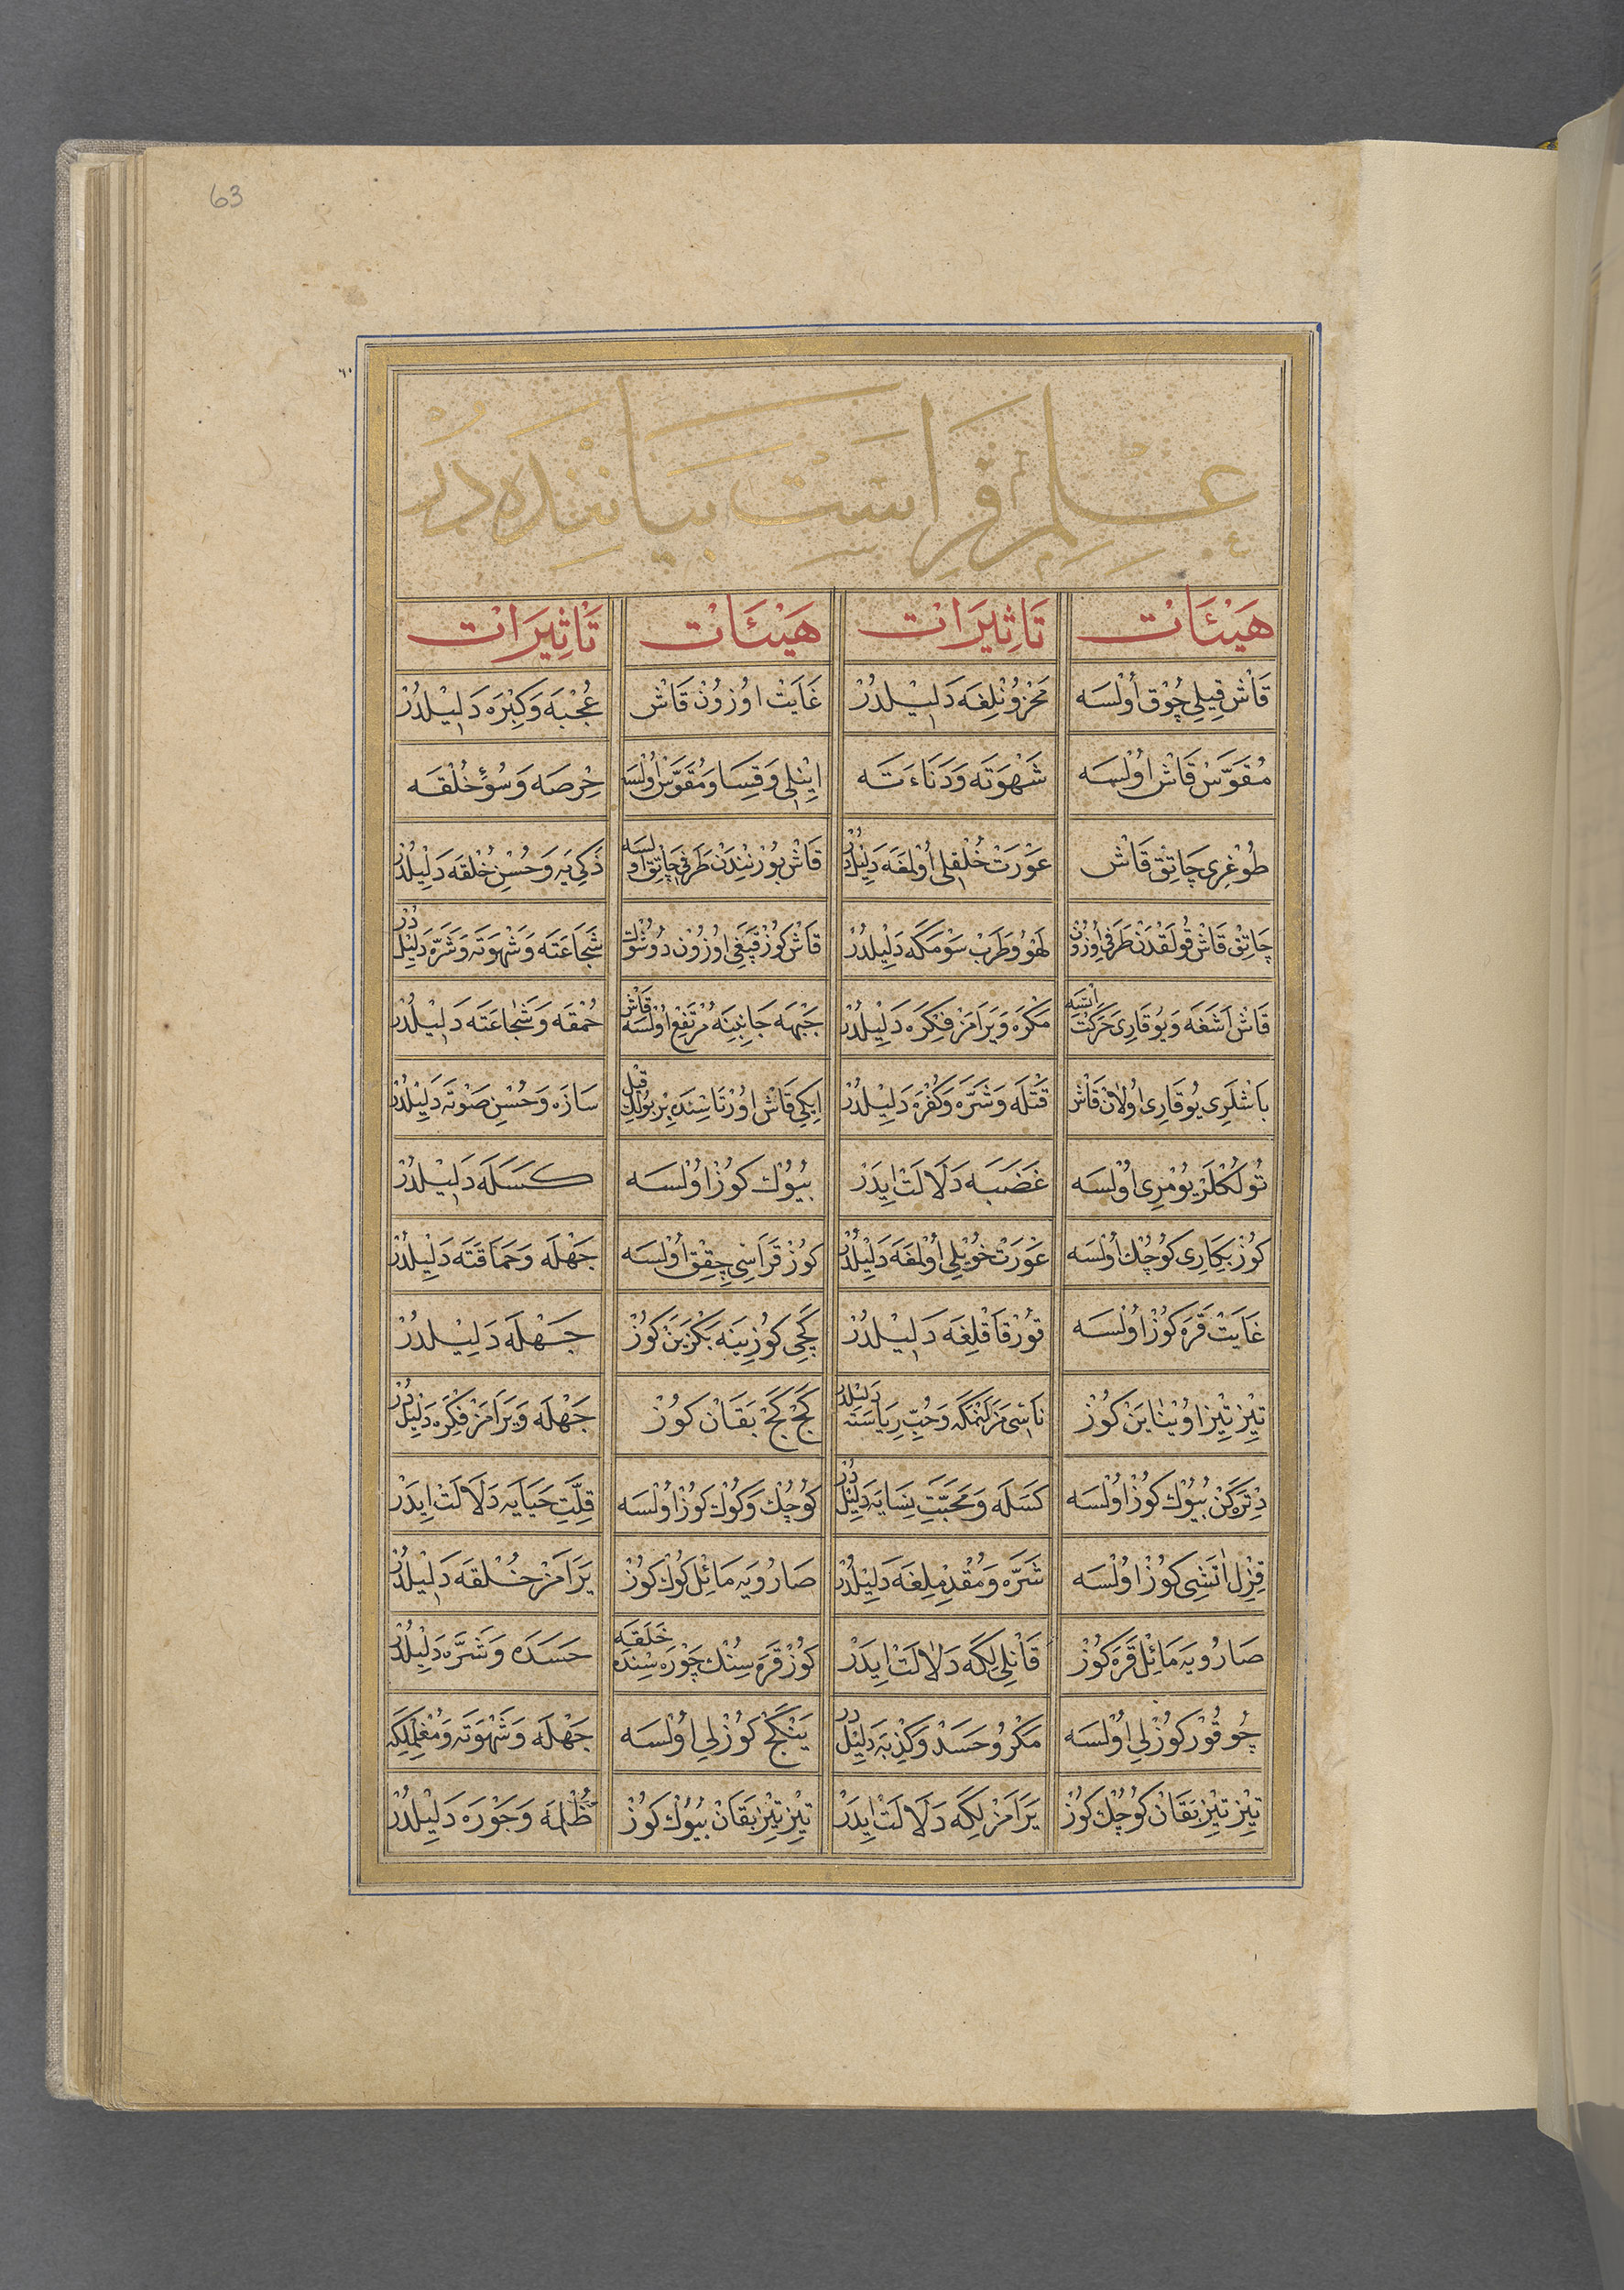 63
عِلْمِ فِرَاسَتْ بَيَانِنْدَه دُرْ
هَيْئَاتْ تَاثِيرَاتْ هَيْئَاتْ تَاثِيرَاتْ
قَاشْ قِيلِى چُوْق اُولْسَه مَحْزُونْلِغَه دَلِيلْدُرْ غَايَتْ اوُزوُنْ قَاشْ عُجْبَه وَكِبْرَه دَلِيلْدُرْ
مُقَوَّسْ قَاشْ اوُلْسَه شَهْوَتَه وَدَنَاءَتَه اِينْلِى وَقِسَا وَمُقَوَّسْ اُولْسَه حِرصَه وَسُوءِ خُلْقَه
طُوْغرِى چَاتِقْ قَاشْ عَوْرَتْ خُلْقلِى اُولْمَغَه دَلِيلْدُرْ قَاشْ بُورْنِنْدَنْ طَرَفِى چَاتِقْ اوُلسَه ذَكِى يَه وَحُسْنِ خُلْقَه دَلِيلْدُرْ
چَاتِقْ قَاشْ قُولَقْدَنْ طَرَفِى اُوزُونْ لَهْوُ وطَرَبْ سَوْمَكَه دَلِيلْدُرْ قَاشْ كُوزْ قَپَغِى اوُزُونْ دُوشُوكْ شَجَاعَتَه وَشَهْوَتَه وَشَرَّه دَلِيلْدُرْ
قَاشْ اَشَغَه وَيُوقَارِى حَرَكَتْ اتسَه مَكْرَه وَيَرَامَزْ فِكِرَه دَلِيلْدُرْ جَبْهَه جَانِبِنَه مُرْتَفِعْ اُولْسَه قَاشْ حُمْقَه وَشَجَاعَتَه دَلِيلْدُرْ
بَاشْلَرِى يُوقَارِى اُولَانْ قَاشْ قَتْلَه وَشَرَّه وَكُفْرَه دَلِيلْدُرْ اِيكِى قَاشْ اوُرْتَاسِنْدَه بِرْ بُولُكْ قِلْ سَازَه وَحُسْنِ صَوْتَه دَلِيلْدُرْ
تُولُكْلَرْ يُومْرِى اُولْسَه غَضَبَه دَلَالَتْ اِيدَرْ بُيُوكْ كوُزْ اوُلْسَه كَسَلَه دَلِيلْدُرْ
كُوزْ بِكَارِى كُوچُكْ اُولْسَه عَوْرَتْ خُويْلِى اُولْمَغَه دَلِيلْدُرْ كوُزْ قَرَاسِى چِقِقْ اُولْسَه جَهْلَه وَحَمَاقَتَه دَلِيلْدُرْ
غَايَتْ قَرَه كوُزْ اُولْسَه قوُرْقَاقْلِغَه دَلِيلْدُرْ كَچِى كوُزِينَه بَكْزَيَنْ كُوزْ جَهْلَه دَلِيلْدُرْ
تِيزْ تِيزْ اوُيْنَايَنْ كوُزْ نَاسِى مَزَلَنْمَكَه وَحُبِّ رِيَاسَتَه دَلِيلْدر كَجْ كَجْ بَقَانْ كوُزْ جَهْلَه وَيَرَامَزْ فِكْرَه دَلِيلْدُرْ
دِتْرَكَنْ بُيُوكْ كوُزْ اُولْسَه كَسَلَه وَمَحَبَّتِ نِسَايَه دَلِيلْدُرْ كُوچُكْ وَكُوكْ كوُزْ اُولْسَه قِلَّتِ حَيَايَه دَلَالَتْ اِيدَرْ
قِزِلْ اٰتَشِى كوُزْ اوُلْسَه شَرَّه وَمُقْدِمْلِغَه دَلِيلْدُرْ صَارُويَه مَائِلْ كُوكْ كوُزْ يَرَامَزْ خُلْقَه دَلِيلْدُرْ
صَارُويَه مَائِلْ قَرَه كوُزْ قَانْلِى لِكَه دَلَالَتْ اِيدَرْ كُوزْ قَرَه سِنْكْ چَوْرَه سِنْدَه خَلَقَه حَسَدَه وَشَرَّه دَلِيلْدُرْ
چُوقُورْ كوُزْلِى اُولْسَه مَكْرُ وحَسَدْ وَكَذِبَه دَلِيلْدر يَنْكَجْ كوُزْلِى اُولْسَه جَهْلَه وَشَهْوَتَه
تِيزْ تِيزْ بَقَانْ كُوچُكْ كُوزْ يَرَامَزْلِكَه دَلَالَتْ اِيدَرْ تِيزْ تِيزْ بَقَانْ بُيُوكْ كُوزْ ظُلْمَه وَجَوْرَه دَلِيلْدُرْ